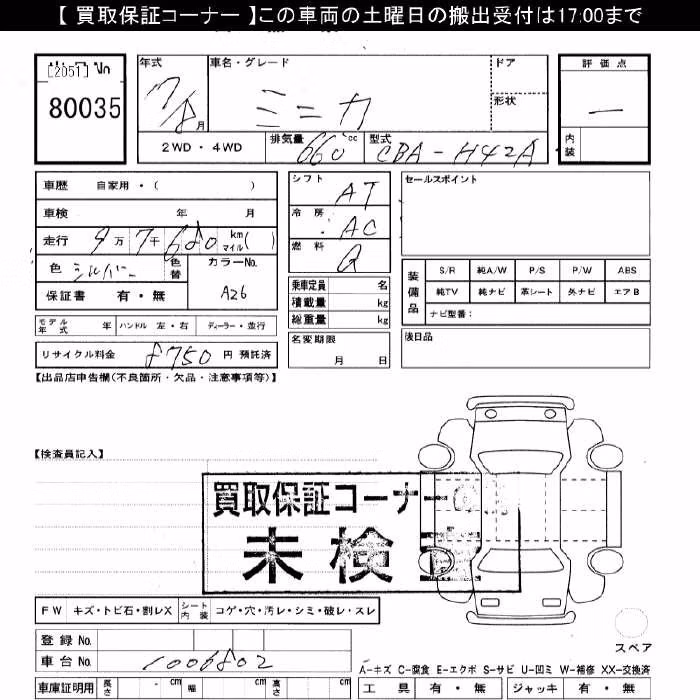 【 買取保証コーナー 】この車両の土曜日の搬出受付は17:00まで
[2051] No
80035
年式
17/8月
車名・グレード
ミニカ
ドア
形状
評価点
―
内装
2WD・4WD
排気量 660 cc
型式 CBA-H42A
車歴 自家用・( )
車検 年 月
走行 9万7千680 km マイル( )
色 シルバー 色替
カラーNo. A26
保証書 有・無
シフト AT
冷房 AC
燃料 G
乗車定員 名
積載量 kg
総重量 kg
名変期限 月 日
セールスポイント
装備品
S/R 純A/W P/S P/W ABS
純TV 純ナビ 革シート 外ナビ エアB
ナビ型番:
後日品
モデル年式 年 ハンドル 左・右 ディーラー・並行
リサイクル料金 8750 円 預託済
【出品店申告欄(不良箇所・欠品・注意事項等)】
【検査員記入】
買取保証コーナー
未検
FW キズ・トビ石・割レX シート内装 コゲ・穴・汚レ・シミ・破レ・スレ
登録 No.
車台 No. 1006802
スペア
A-キズ C-腐食 E-エクボ S-サビ U-凹ミ W-補修 XX-交換済
車庫証明用 長さ - cm 幅 cm 高さ cm
工具 有・無 ジャッキ 有・無